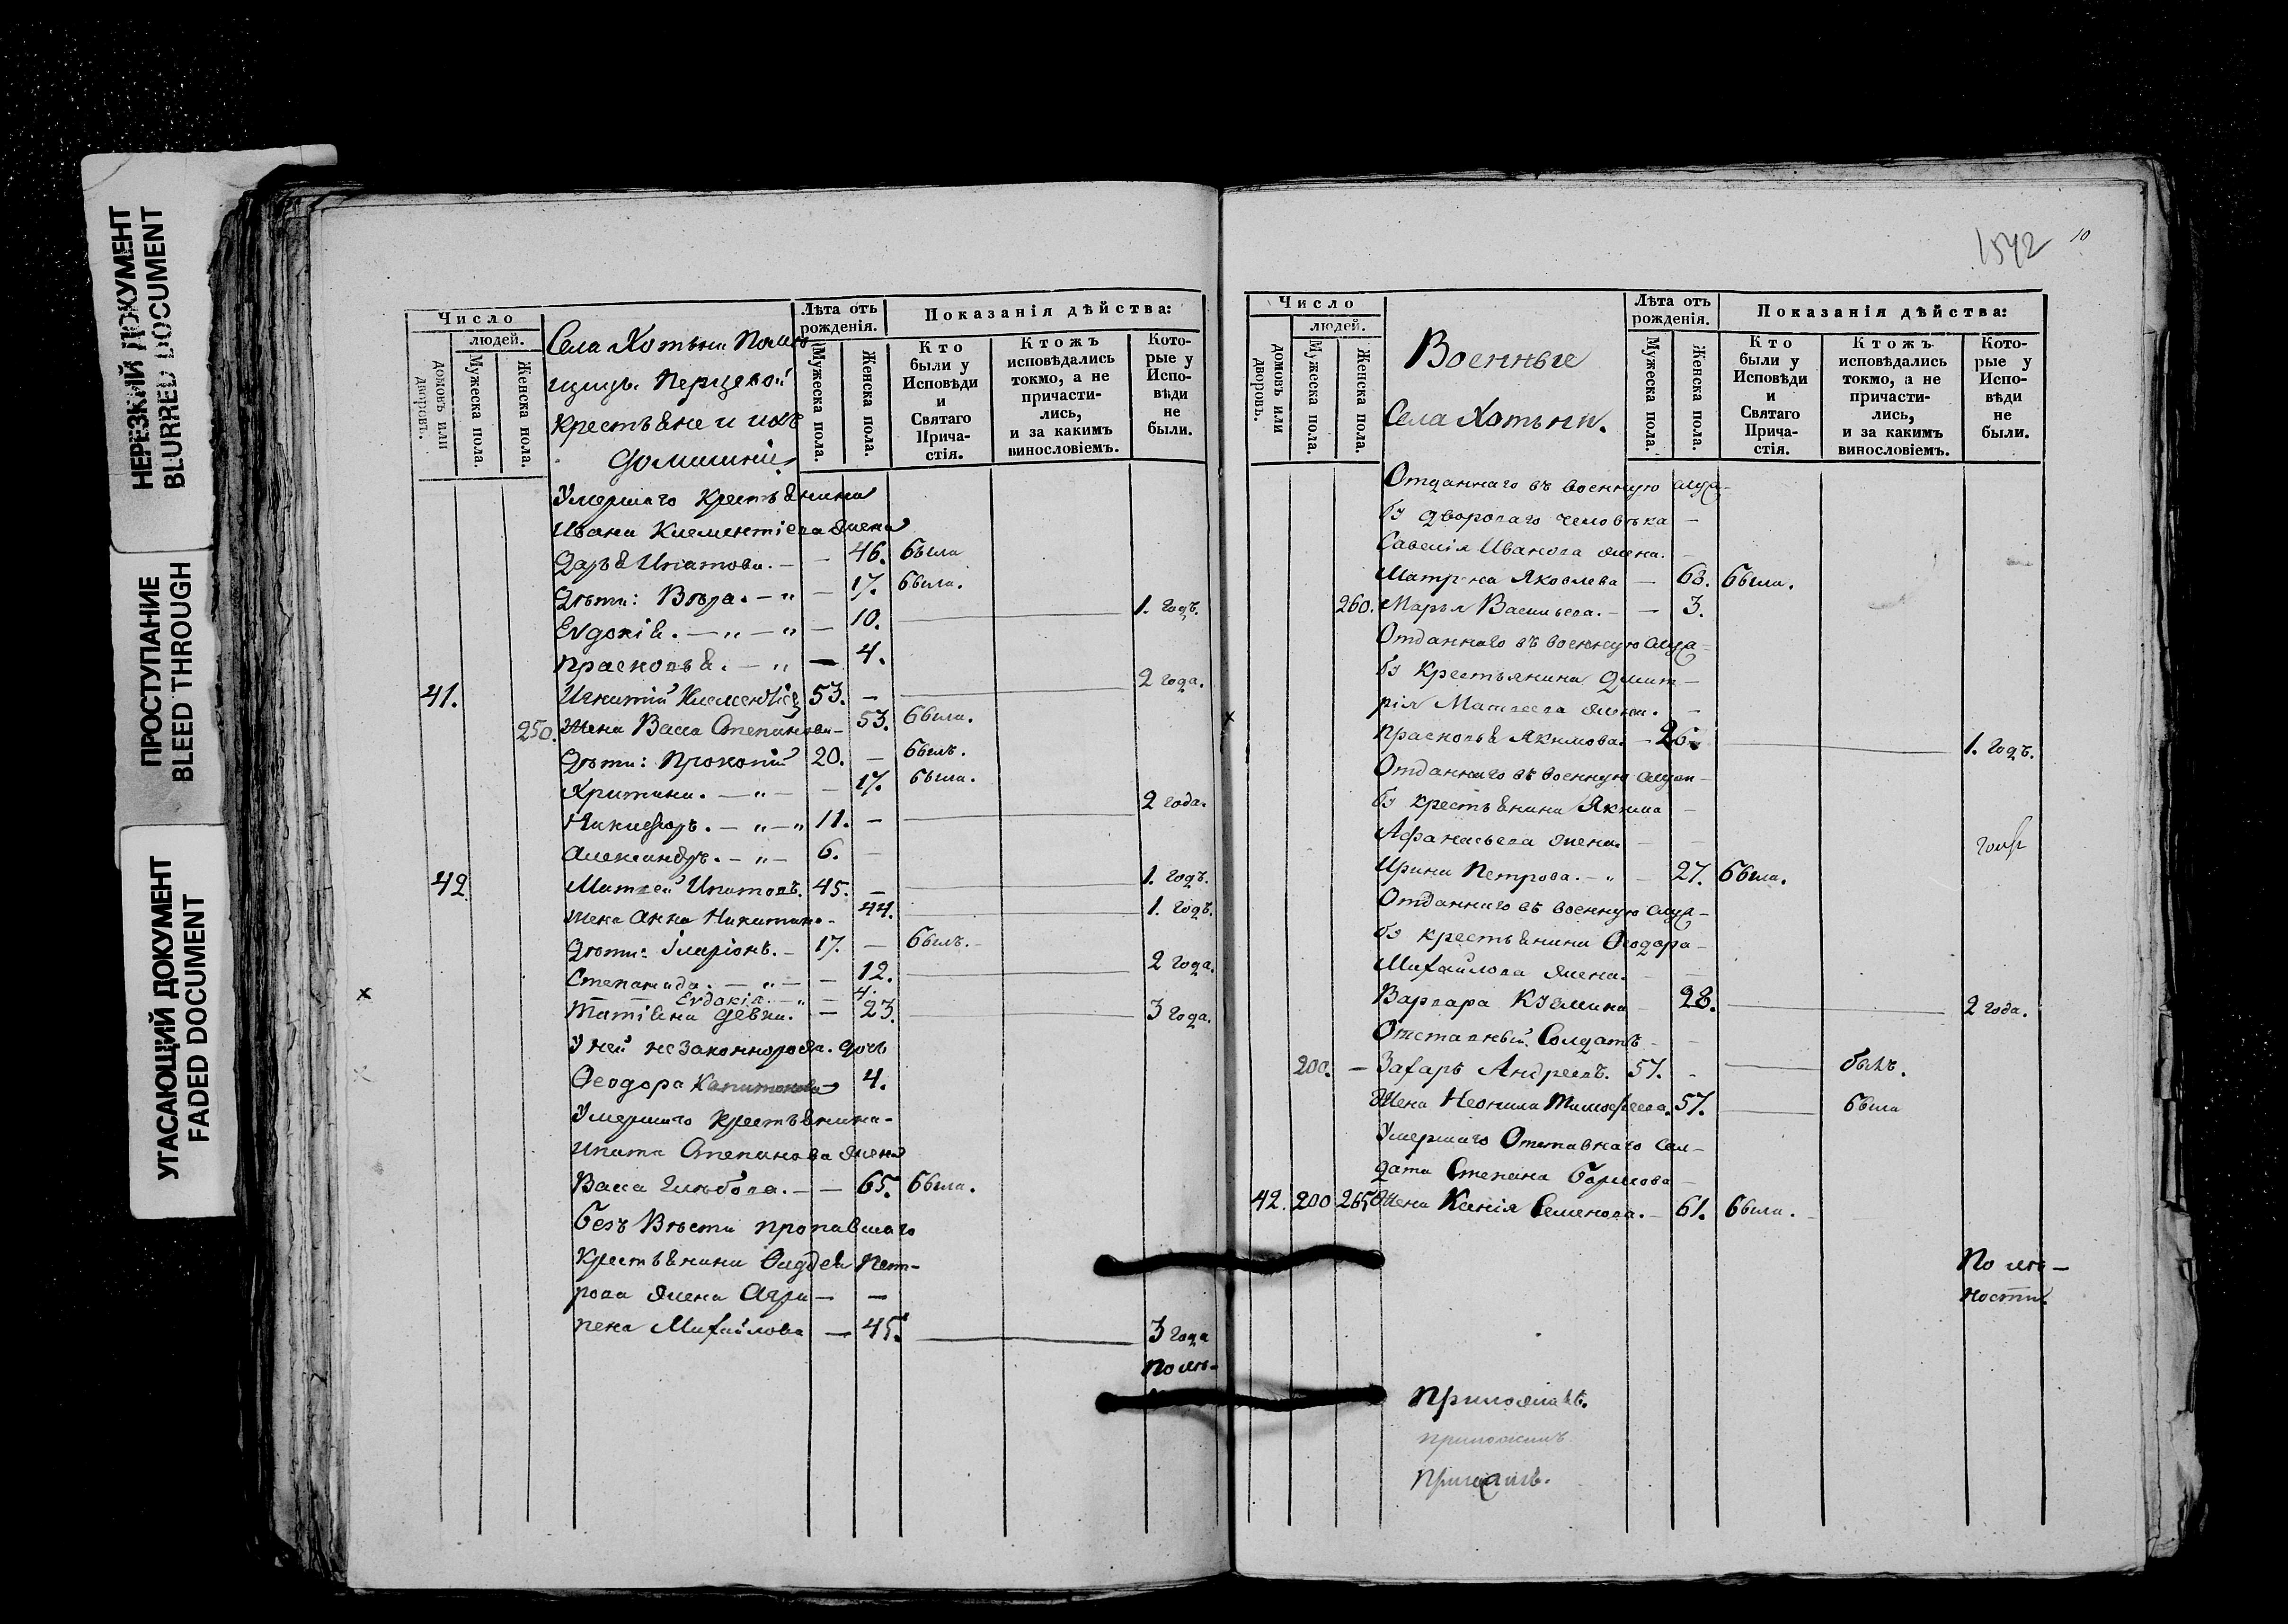 НЕРЕЗКИЙ ДОКУМЕНТ
BLURRED DOCUMENT
ПРОСТУПАНИЕ
BLEED THROUGH
УГАСАЮЩИЙ ДОКУМЕНТ
FADED DOCUMENT
Число
людей.
домовъ или дворовъ.
Мужеска пола.
Женска пола.
Села Хотыни Помѣ-
щицы Перцевой
крестьяне и ихъ
домашніе
Лѣта отъ рожденія.
Мужеска пола.
Женска пола.
Показанія дѣйства:
Кто были у Исповѣди и Святаго Прича- стія.
Ктожъ исповѣдались токмо, а не причасти- лись, и за какимъ винословіемъ.
Кото- рые у Испо- вѣди не были.
Умершаго крестьянина
Ивана Климентіева жена
Дарья Ипатова. — — 46. была
Дѣти: Вѣра. — „ — 17. была.
Евдокія. — „ — „ — 10. 1. годъ.
Прасковья. — „ — 4.
41. Игнатій Климентіев 53. — 2 года.
250. Жена Васса Степанова — 53. была.
Дѣти: Прокопій 20. — былъ.
Христина. — „ — — 17. была.
Никифоръ. — „ — „ 11. — 2 года.
Александръ. — „ — 6. —
42 Матвей Ипатовъ. 45. — 1. годъ.
жена Анна Никитина — 44. 1. годъ.
Дѣти: Иларіонъ. — 17. — былъ.
Степанида. — „ — — 12. 2 года.
Евдокія. — „ — 4.
Татіана девка. — 23. 3 года.
У ней незаконнорожд. дочь
Ѳеодора Капитонова 4.
Умершаго крестьянина
Ипата Степанова жена
Васса Глѣбова. — — 65. была.
безъ вѣсти пропавшаго
крестьянина Авдея Пет-
рова жена Агри — —
пена Михайлова — 45. 3 года
По лѣ-
1542 10
Число
людей.
домовъ или дворовъ.
Мужеска пола.
Женска пола.
Военные
Села Хотыни.
Лѣта отъ рожденія.
Мужеска пола.
Женска пола.
Показанія дѣйства:
Кто были у Исповѣди и Святаго Прича- стія.
Ктожъ исповѣдались токмо, а не причасти- лись, и за какимъ винословіемъ.
Кото- рые у Испо- вѣди не были.
Отданнаго въ военную служ-
бу двороваго человѣка —
Савелія Иванова жена. —
Матрена Яковлева — 63. была.
260. Марья Васильева. — — 3.
Отданнаго въ военную служ-
бу крестьянина Дмит-
рія Матвеева жена. —
Прасковья Якимова. — 26. 1. годъ.
Отданнаго въ военную служ-
бу крестьянина Якима —
Афанасьева жена. — —
Ирина Петрова. — „ — 27. была.
Отданнаго въ военную служ-
бу крестьянина Ѳеодора —
Михайлова жена. — —
Варвара Кузмина 28. 2 года.
Отставный Солдатъ —
200. — Захаръ Андреевъ. 57. — былъ.
Жена Неонила Тимофеева. 57. была
Умершаго Отставнаго Сол-
дата Степана
42. 200 265 Жена Ксенія Семенова. — 61. была.
По лѣ-
ности.
приложилъ